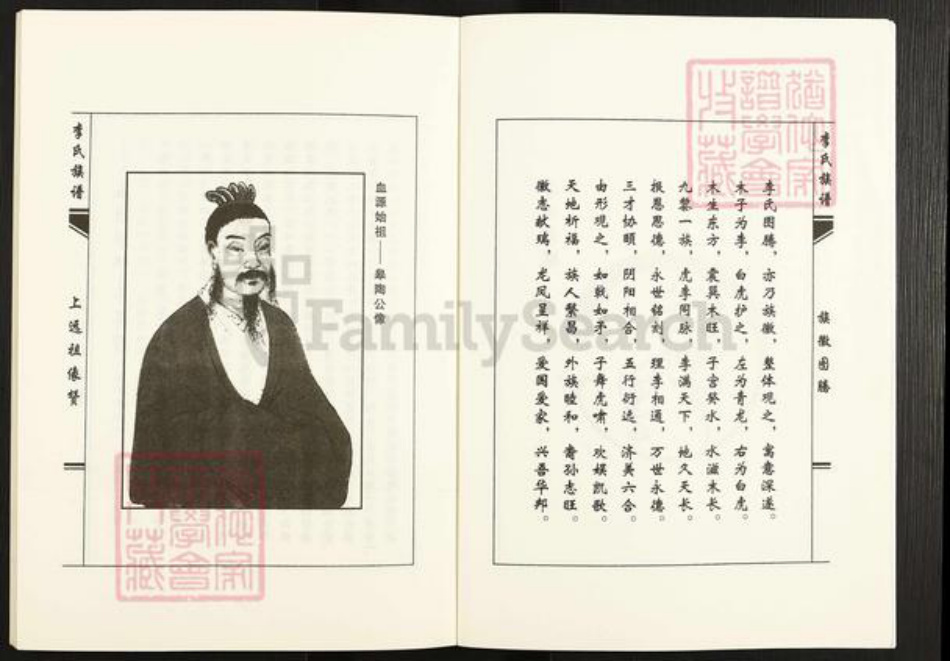 李氏族谱
族徽图腾
李氏图腾，亦乃族徽，整体观之，寓意深邃。
木子为李，白虎护之，左为青龙，右为白虎。
木生东方，震巽木旺，子宫癸水，水滋木长。
九黎一族，虎李同脉，李满天下，地久天长。
报恩思德，永世铭刻，理李相通，万世永德。
三才协颐，阴阳相合，五行衍迭，济美六合。
由形观之，如戟如矛，子舞虎啸，欢娱凯歌。
天地祈福，族人繁昌，外族睦和，裔孙志旺。
徽志献瑞，龙凤呈祥，爱国爱家，兴吾华邦。
血源始祖——皋陶公像
李氏族谱
上远祖像赞
FamilySearch